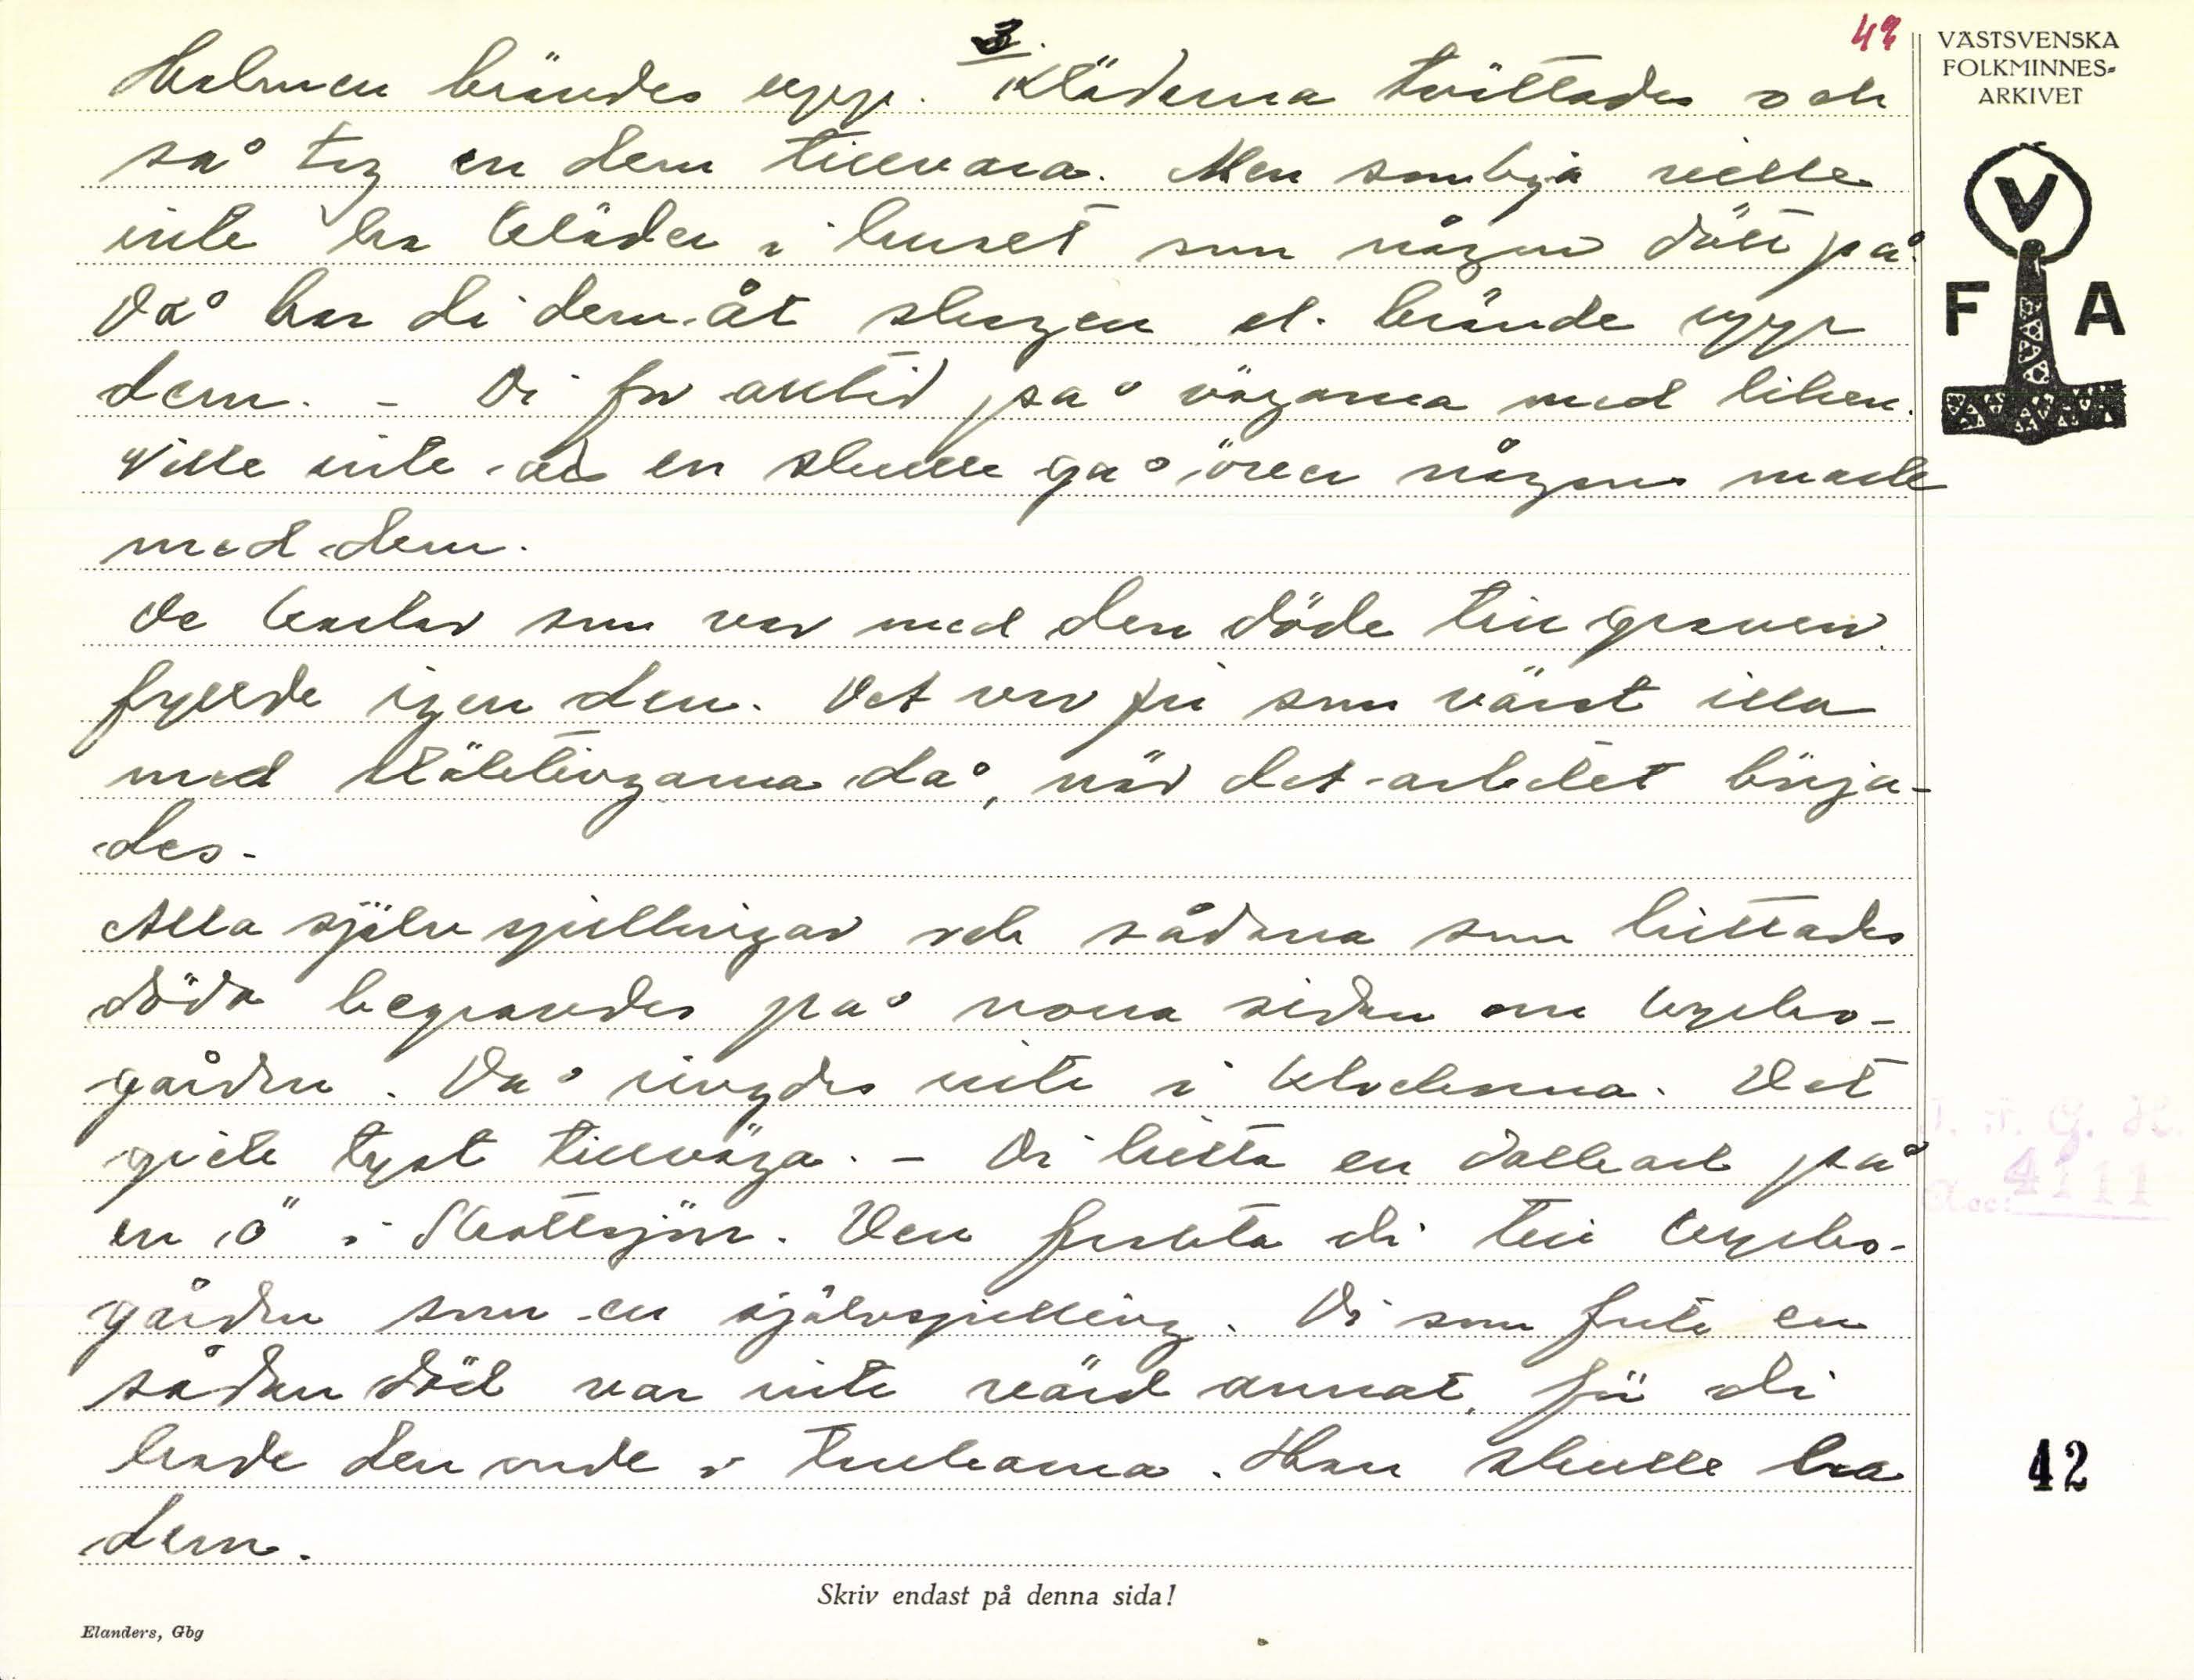 3.
42
Halmen brändes upp. Kläderna tvättades och
så tog en dem tillvara. Men somliga ville
inte ha kläder i huset som någon dött på.
Då bar di dem åt skogen el. brände upp
dem. - Di for alltid på vägarna med liken.
Ville inte att en skulle gå över någons mark
med dem.
De karlar som var med den döde till graven
fyllde igen den. Det var för som värst illa
med släktingarna då, när det arbetet börja-
des.
Alla självspillingar och sådana som hittades
döda begravdes på norra sidan om kyrko-
gården. Då ringdes inte i klockorna. Det
gick tyst tillväga. - Di hitta en på
en ö i Skottsjön. Den forkta di till kyrko-
gården som en självspilling. Di som fick en
sådan död var inte värd annat, för di
hade den onde i tankarna. Han skulle ha
dem.
Skriv endast på denna sida!
Elanders, Gbg
VÄSTSVENSKA
FOLKMINNES-
ARKIVET
V
F A
I. F. G. H.
Acc: 4111
42